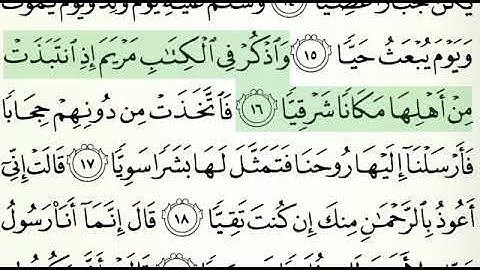 يَكُن جَبَّارًا عَصِيًّا ١٤ وَسَلَٰمٌ عَلَيْهِ يَوْمَ وُلِدَ وَيَوْمَ يَمُوتُ
وَيَوْمَ يُبْعَثُ حَيًّا ١٥ وَٱذْكُرْ فِى ٱلْكِتَٰبِ مَرْيَمَ إِذِ ٱنتَبَذَتْ
مِنْ أَهْلِهَا مَكَانًا شَرْقِيًّا ١٦ فَٱتَّخَذَتْ مِن دُونِهِمْ حِجَابًا
فَأَرْسَلْنَآ إِلَيْهَا رُوحَنَا فَتَمَثَّلَ لَهَا بَشَرًا سَوِيًّا ١٧ قَالَتْ إِنِّىٓ
أَعُوذُ بِٱلرَّحْمَٰنِ مِنكَ إِن كُنتَ تَقِيًّا ١٨ قَالَ إِنَّمَآ أَنَا۠ رَسُولُ